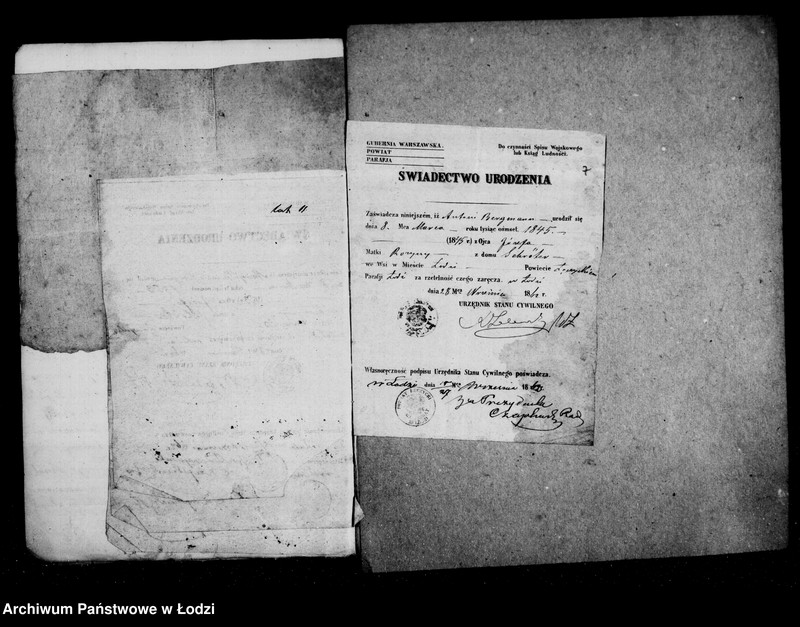 lat 11
GUBERNIA WARSZAWSKA.
POWIAT
PARAFJA
Do czynności Spisu Wojskowego
lub Ksiąg Ludności.
7
SWIADECTWO URODZENIA
Zaświadcza niniejszém, iż Antoni Bergmann — urodził się
dnia 8. Mca Marca — roku tysiąc ośmset 1845 —
(1845 r.) z Ojca Józefa —
Matki Rozyny — z domu Schröter —
we Wsi w Mieście Łodzi — Powiecie
Parafji Łódź za rzetelność czego zaręcza. w Łodzi
dnia 28 Mca Września 186 r.
URZĘDNIK STANU CYWILNEGO
Własnoręczność podpisu Urzędnika Stanu Cywilnego poświadcza.
w Łodzi dnia Mca Września 186 r.
Za Prezydenta
Rad
Archiwum Państwowe w Łodzi